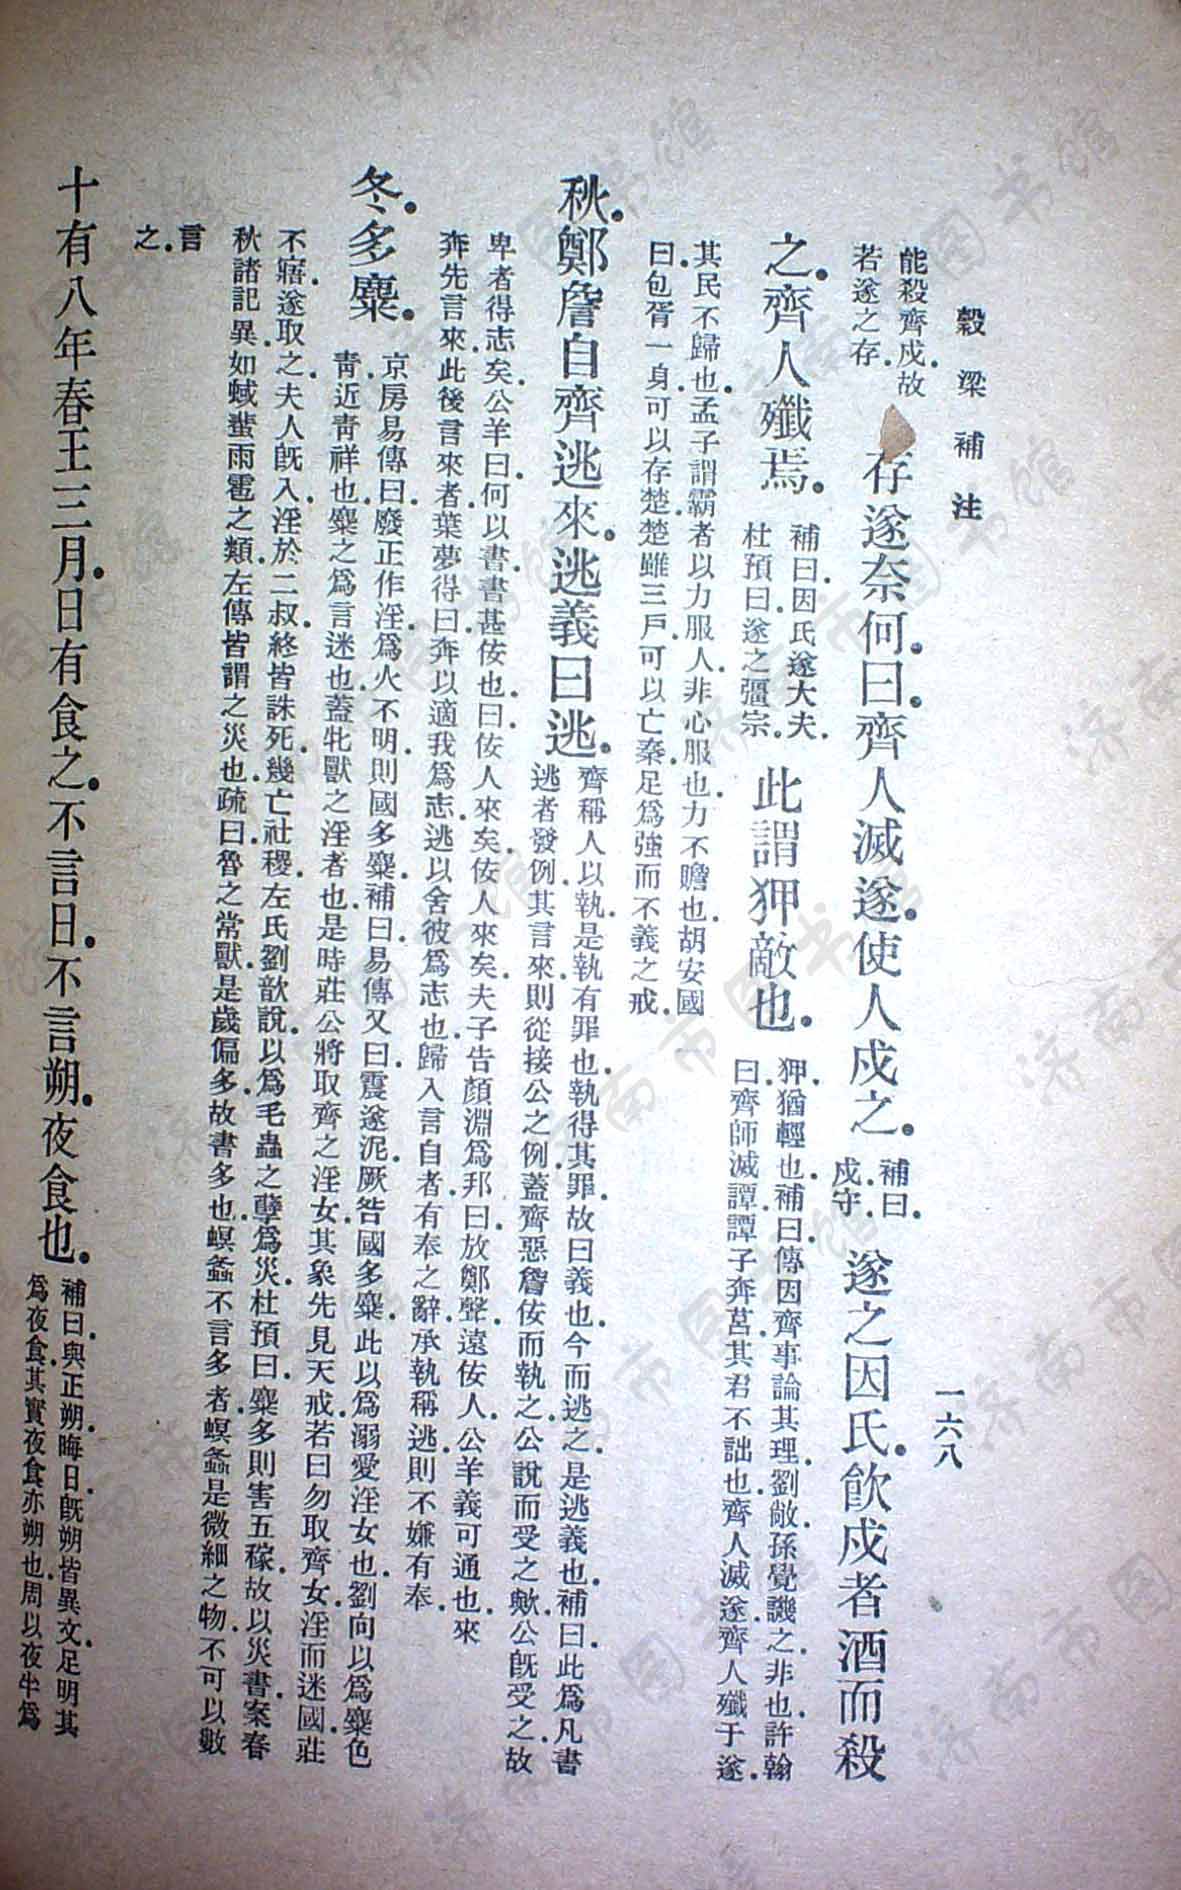 穀梁補注
一六八
能殺齊戍故
若遂之存
存遂奈何曰齊人滅遂使人戍之
補曰
戍守
遂之因氏飲戍者酒而殺
之齊人殲焉
補曰因氏遂大夫
杜預曰遂之彊宗
此謂狎敵也
狎猶輕也補曰傳因齊事論其理劉敞孫覺譏之非也許翰
曰齊師滅譚譚子奔莒其君不詘也齊人滅遂齊人殲于遂
其民不歸也孟子謂霸者以力服人非心服也力不贍也胡安國
曰包胥一身可以存楚楚雖三戶可以亡秦足爲強而不義之戒
秋鄭詹自齊逃來逃義曰逃
齊稱人以執是執有罪也執得其罪故曰義也今而逃之是逃義也補曰此爲凡書
逃者發例其言來則從接公之例蓋齊惡詹佞而執之公說而受之歟公旣受之故
卑者得志矣公羊曰何以書書甚佞也曰佞人來矣佞人來矣夫子告顏淵爲邦曰放鄭聲遠佞人公羊義可通也來
奔先言來此後言來者葉夢得曰奔以適我爲志逃以舍彼爲志也歸入言自者有奉之辭承執稱逃則不嫌有奉
冬多麋
京房易傳曰廢正作淫爲火不明則國多麋補曰易傳又曰震遂泥厥咎國多麋此以爲溺愛淫女也劉向以爲麋色
青近青祥也麋之爲言迷也蓋牝獸之淫者也是時莊公將取齊之淫女其象先見天戒若曰勿取齊女淫而迷國莊
不寤遂取之夫人旣入淫於二叔終皆誅死幾亡社稷左氏劉歆說以爲毛蟲之孽爲災杜預曰麋多則害五稼故以災書案春
秋諸記異如蜮蜚雨雹之類左傳皆謂之災也疏曰魯之常獸是歲偏多故書多也螟螽不言多者螟螽是微細之物不可以數
言
之
十有八年春王三月日有食之不言日不言朔夜食也
補曰與正朔晦日旣朔皆異文足明其
爲夜食其實夜食亦朔也周以夜半爲